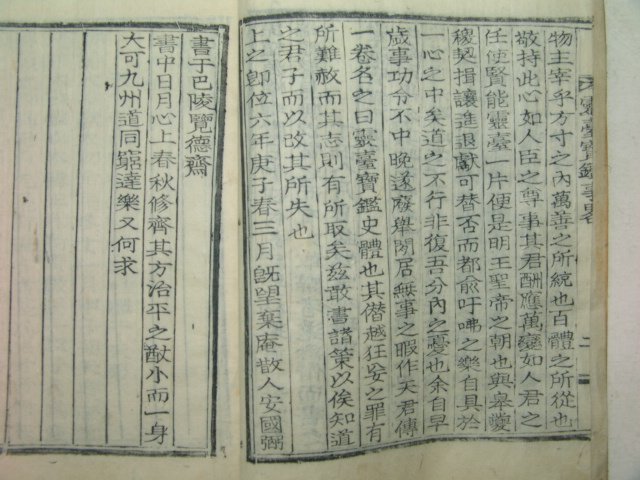 天君靈臺寶鑑事畧
二
物主宰乎方寸之內萬善之所統也百體之所從也
敬持此心如人臣之尊事其君酬應萬變如人君之
任使賢能靈臺一片便是明王聖帝之朝也與皐夔
稷契揖讓進退獻可替否而都兪吁咈之樂自具於
一心之中矣道之不行非復吾分內之憂也余自早
歲事功令不中晚遂廢舉閒居無事之暇作天君傳
一卷名之曰靈臺寶鑑史體也其僭越狂妄之罪有
所難赦而其志則有所取矣玆敢書諸策以俟知道
之君子而以改其所失也
上之卽位六年庚子春三月旣望棄庵散人安國弼
書于巴陵覽德齋
書中日月心上春秋修齊其方治平之猷小而一身
大可九州道同窮達樂又何求